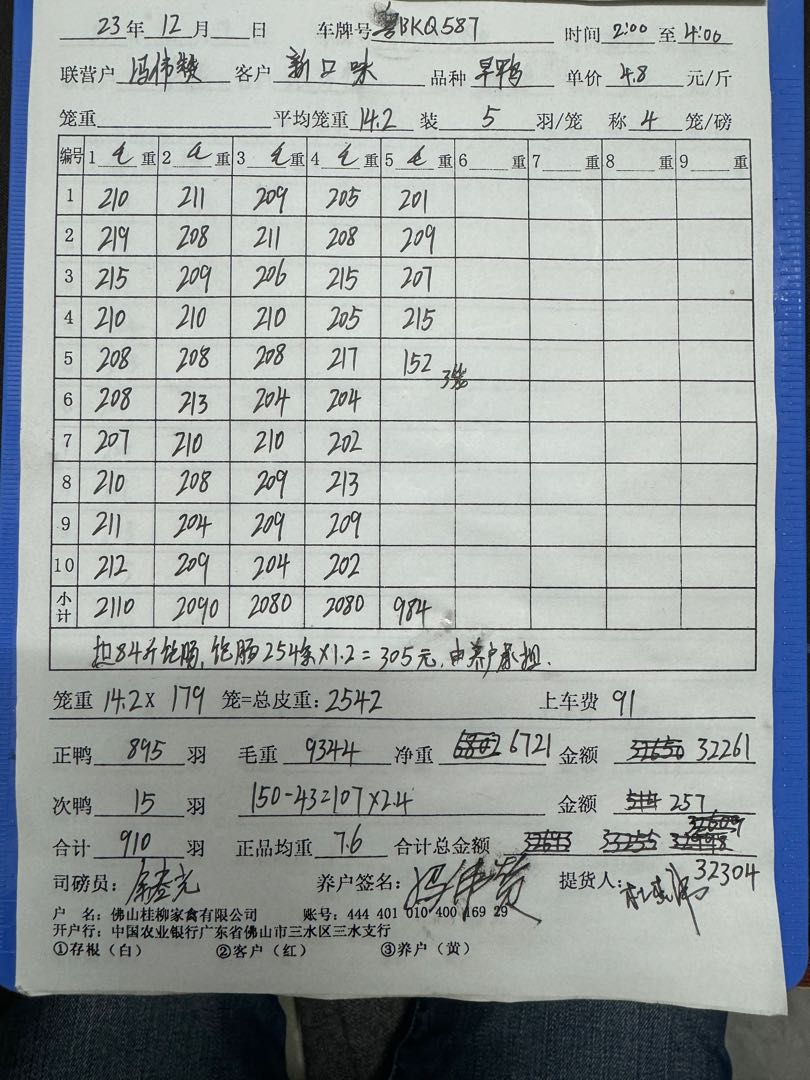 23年12月 日 车牌号 粤BKQ587 时间 2:00 至 4:00
联营户 冯伟赞 客户 新口味 品种 旱鸭 单价 4.8 元/斤
笼重 平均笼重 14.2 装 5 羽/笼 称 4 笼/磅
编号 1 毛 重 2 毛 重 3 毛 重 4 毛 重 5 毛 重 6 重 7 重 8 重 9 重
1 210 211 209 205 201
2 219 208 211 208 209
3 215 209 206 215 207
4 210 210 210 205 215
5 208 208 208 217 152 3笼
6 208 213 204 204
7 207 210 210 202
8 210 208 209 213
9 211 204 209 209
10 212 209 204 202
小计 2110 2090 2080 2080 984
扣84斤饱肠,饱肠254条×1.2=305元,由养户承担.
笼重 14.2× 179 笼=总皮重: 2542 上车费 91
正鸭 895 羽 毛重 9344 净重 6721 金额 32261
次鸭 15 羽 150-43=107×2.4 金额 257
合计 910 羽 正品均重 7.6 合计总金额
32304
司磅员: 养户签名: 冯伟赞 提货人:
户 名: 佛山桂柳家禽有限公司 账号: 444 401 010 400 169 29
开户行: 中国农业银行广东省佛山市三水区三水支行
①存根(白) ②客户(红) ③养户(黄)